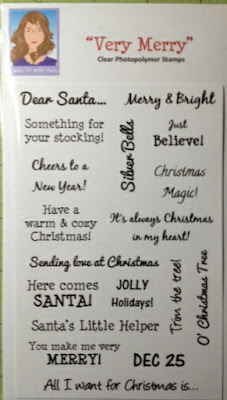 "Very Merry"
Clear Photopolymer Stamps
Dear Santa...
Merry & Bright
Something for
your stocking!
Silver Bells
Just
Believe!
Cheers to a
New Year!
Christmas
Magic!
Have a
warm & cozy
Christmas!
It's always Christmas
in my heart!
Sending love at Christmas
Here comes
SANTA!
JOLLY
Holidays!
Trim the tree!
O' Christmas Tree
Santa's Little Helper
You make me very
MERRY!
DEC 25
All I want for Christmas is...